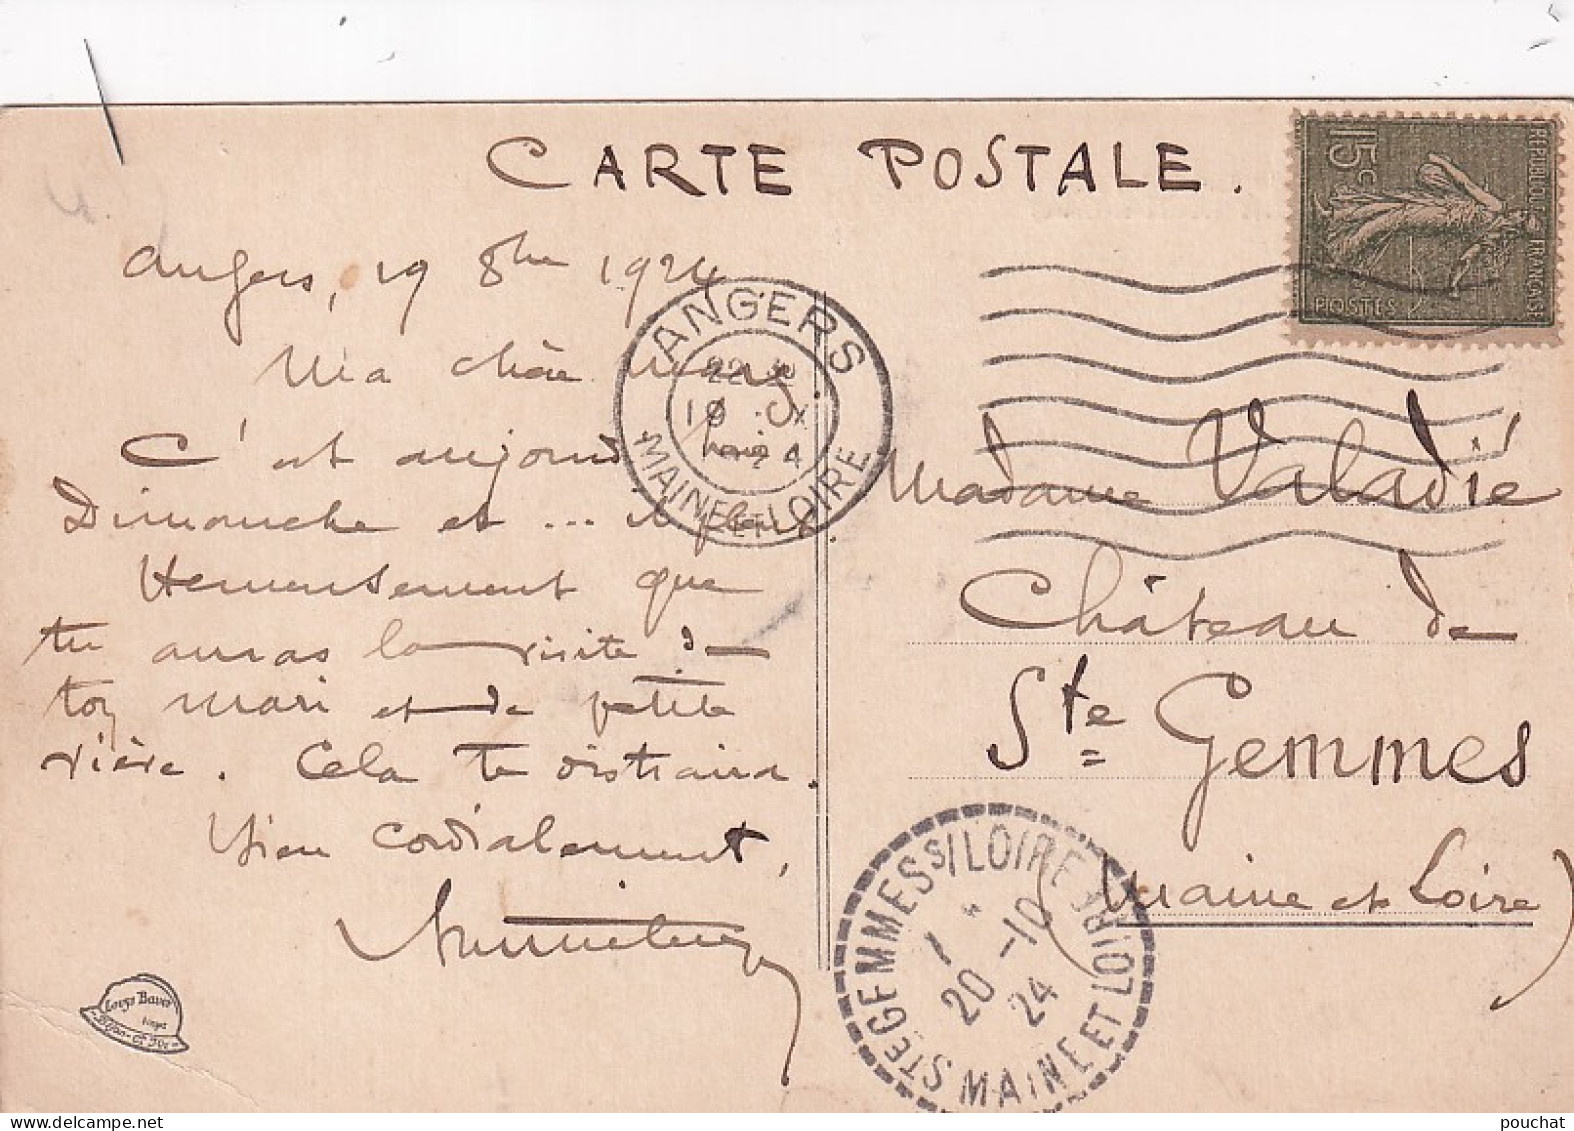 CARTE POSTALE.
REPUBLIQUE FRANÇAISE
15c
POSTES
Angers, 19 8bre 1924
ANGERS
22
19 X
24
MAINE ET LOIRE
Ma chère
C'est aujourd
Dimanche et ... il pleut
Heureusement que
tu auras la visite de
ton mari et de petite
rière. Cela te distraira.
bien cordialement,
Madame Valadié
Château de
Ste Gemmes
(Maine et Loire)
STE GEMMES S/LOIRE
20-10
24
MAINE ET LOIRE
Louys Bauer
Dijon
pouchat